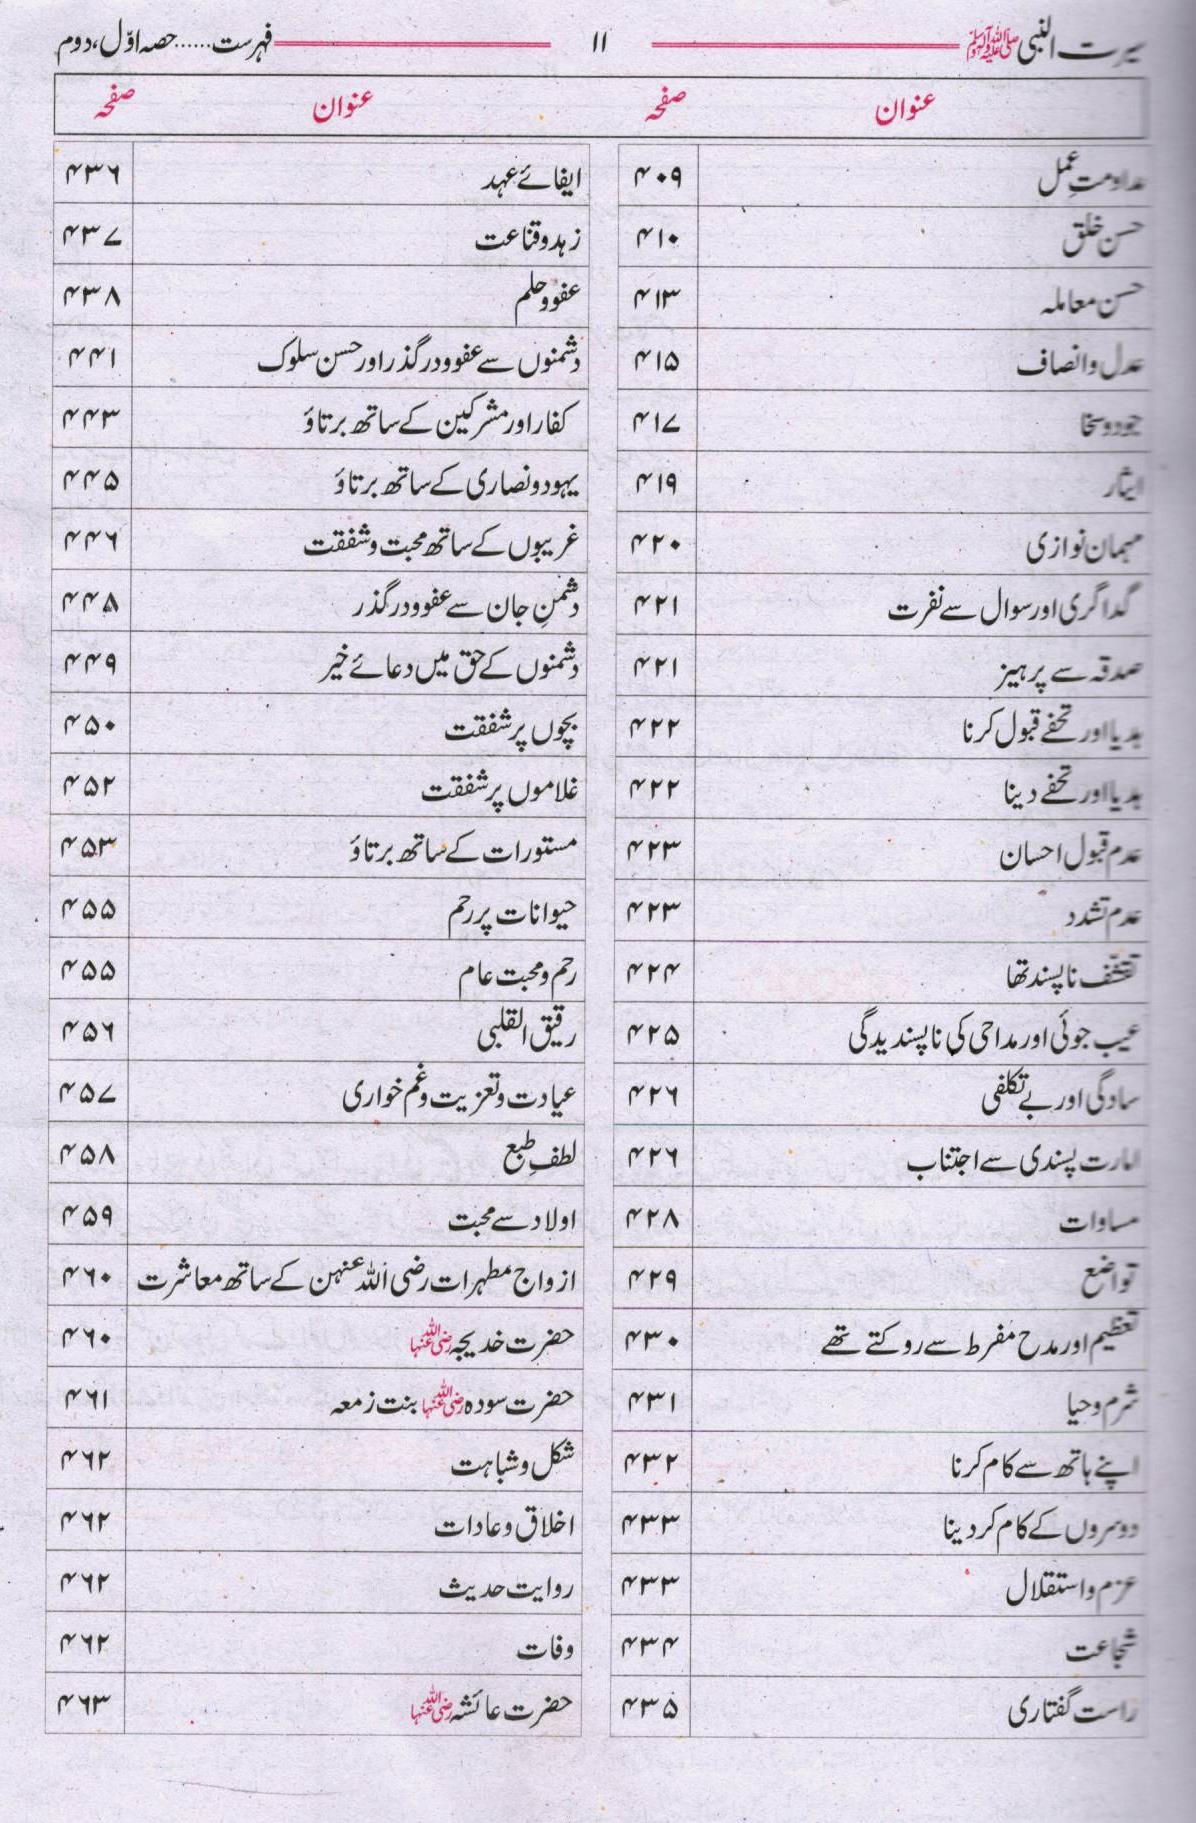 سیرت النبی ﷺ ۱۱ فہرست......حصہ اوّل،دوم
عنوان صفحہ عنوان صفحہ
مداومتِ عمل ۴۰۹
حسن خلق ۴۱۰
حسن معاملہ ۴۱۳
عدل وانصاف ۴۱۵
جودوسخا ۴۱۷
ایثار ۴۱۹
مہمان نوازی ۴۲۰
گداگری اور سوال سے نفرت ۴۲۱
صدقہ سے پرہیز ۴۲۱
ہدیا اور تحفے قبول کرنا ۴۲۲
ہدیا اور تحفے دینا ۴۲۲
عدم قبول احسان ۴۲۳
عدم تشدد ۴۲۳
تقشّف ناپسند تھا ۴۲۴
عیب جوئی اور مداحی کی ناپسندیدگی ۴۲۵
سادگی اور بے تکلفی ۴۲۶
امارت پسندی سے اجتناب ۴۲۶
مساوات ۴۲۸
تواضع ۴۲۹
تعظیم اور مدح مفرط سے روکتے تھے ۴۳۰
شرم وحیا ۴۳۱
اپنے ہاتھ سے کام کرنا ۴۳۲
دوسروں کے کام کردینا ۴۳۳
عزم واستقلال ۴۳۳
شجاعت ۴۳۴
راست گفتاری ۴۳۵
ایفائے عہد ۴۳۶
زہدوقناعت ۴۳۷
عفووحلم ۴۳۸
دشمنوں سے عفوودرگذر اور حسن سلوک ۴۴۱
کفار اور مشرکین کے ساتھ برتاؤ ۴۴۳
یہود ونصاری کے ساتھ برتاؤ ۴۴۵
غریبوں کے ساتھ محبت وشفقت ۴۴۶
دشمنِ جان سے عفوودرگذر ۴۴۸
دشمنوں کے حق میں دعائے خیر ۴۴۹
بچوں پر شفقت ۴۵۰
غلاموں پر شفقت ۴۵۲
مستورات کے ساتھ برتاؤ ۴۵۳
حیوانات پر رحم ۴۵۵
رحم ومحبت عام ۴۵۵
رقیق القلبی ۴۵۶
عیادت وتعزیت وغم خواری ۴۵۷
لطفِ طبع ۴۵۸
اولاد سے محبت ۴۵۹
ازواج مطہرات رضی اللہ عنہن کے ساتھ معاشرت ۴۶۰
حضرت خدیجہ رضی اللہ عنہا ۴۶۰
حضرت سودہ رضی اللہ عنہا بنت زمعہ ۴۶۱
شکل وشباہت ۴۶۲
اخلاق وعادات ۴۶۲
روایت حدیث ۴۶۲
وفات ۴۶۲
حضرت عائشہ رضی اللہ عنہا ۴۶۳